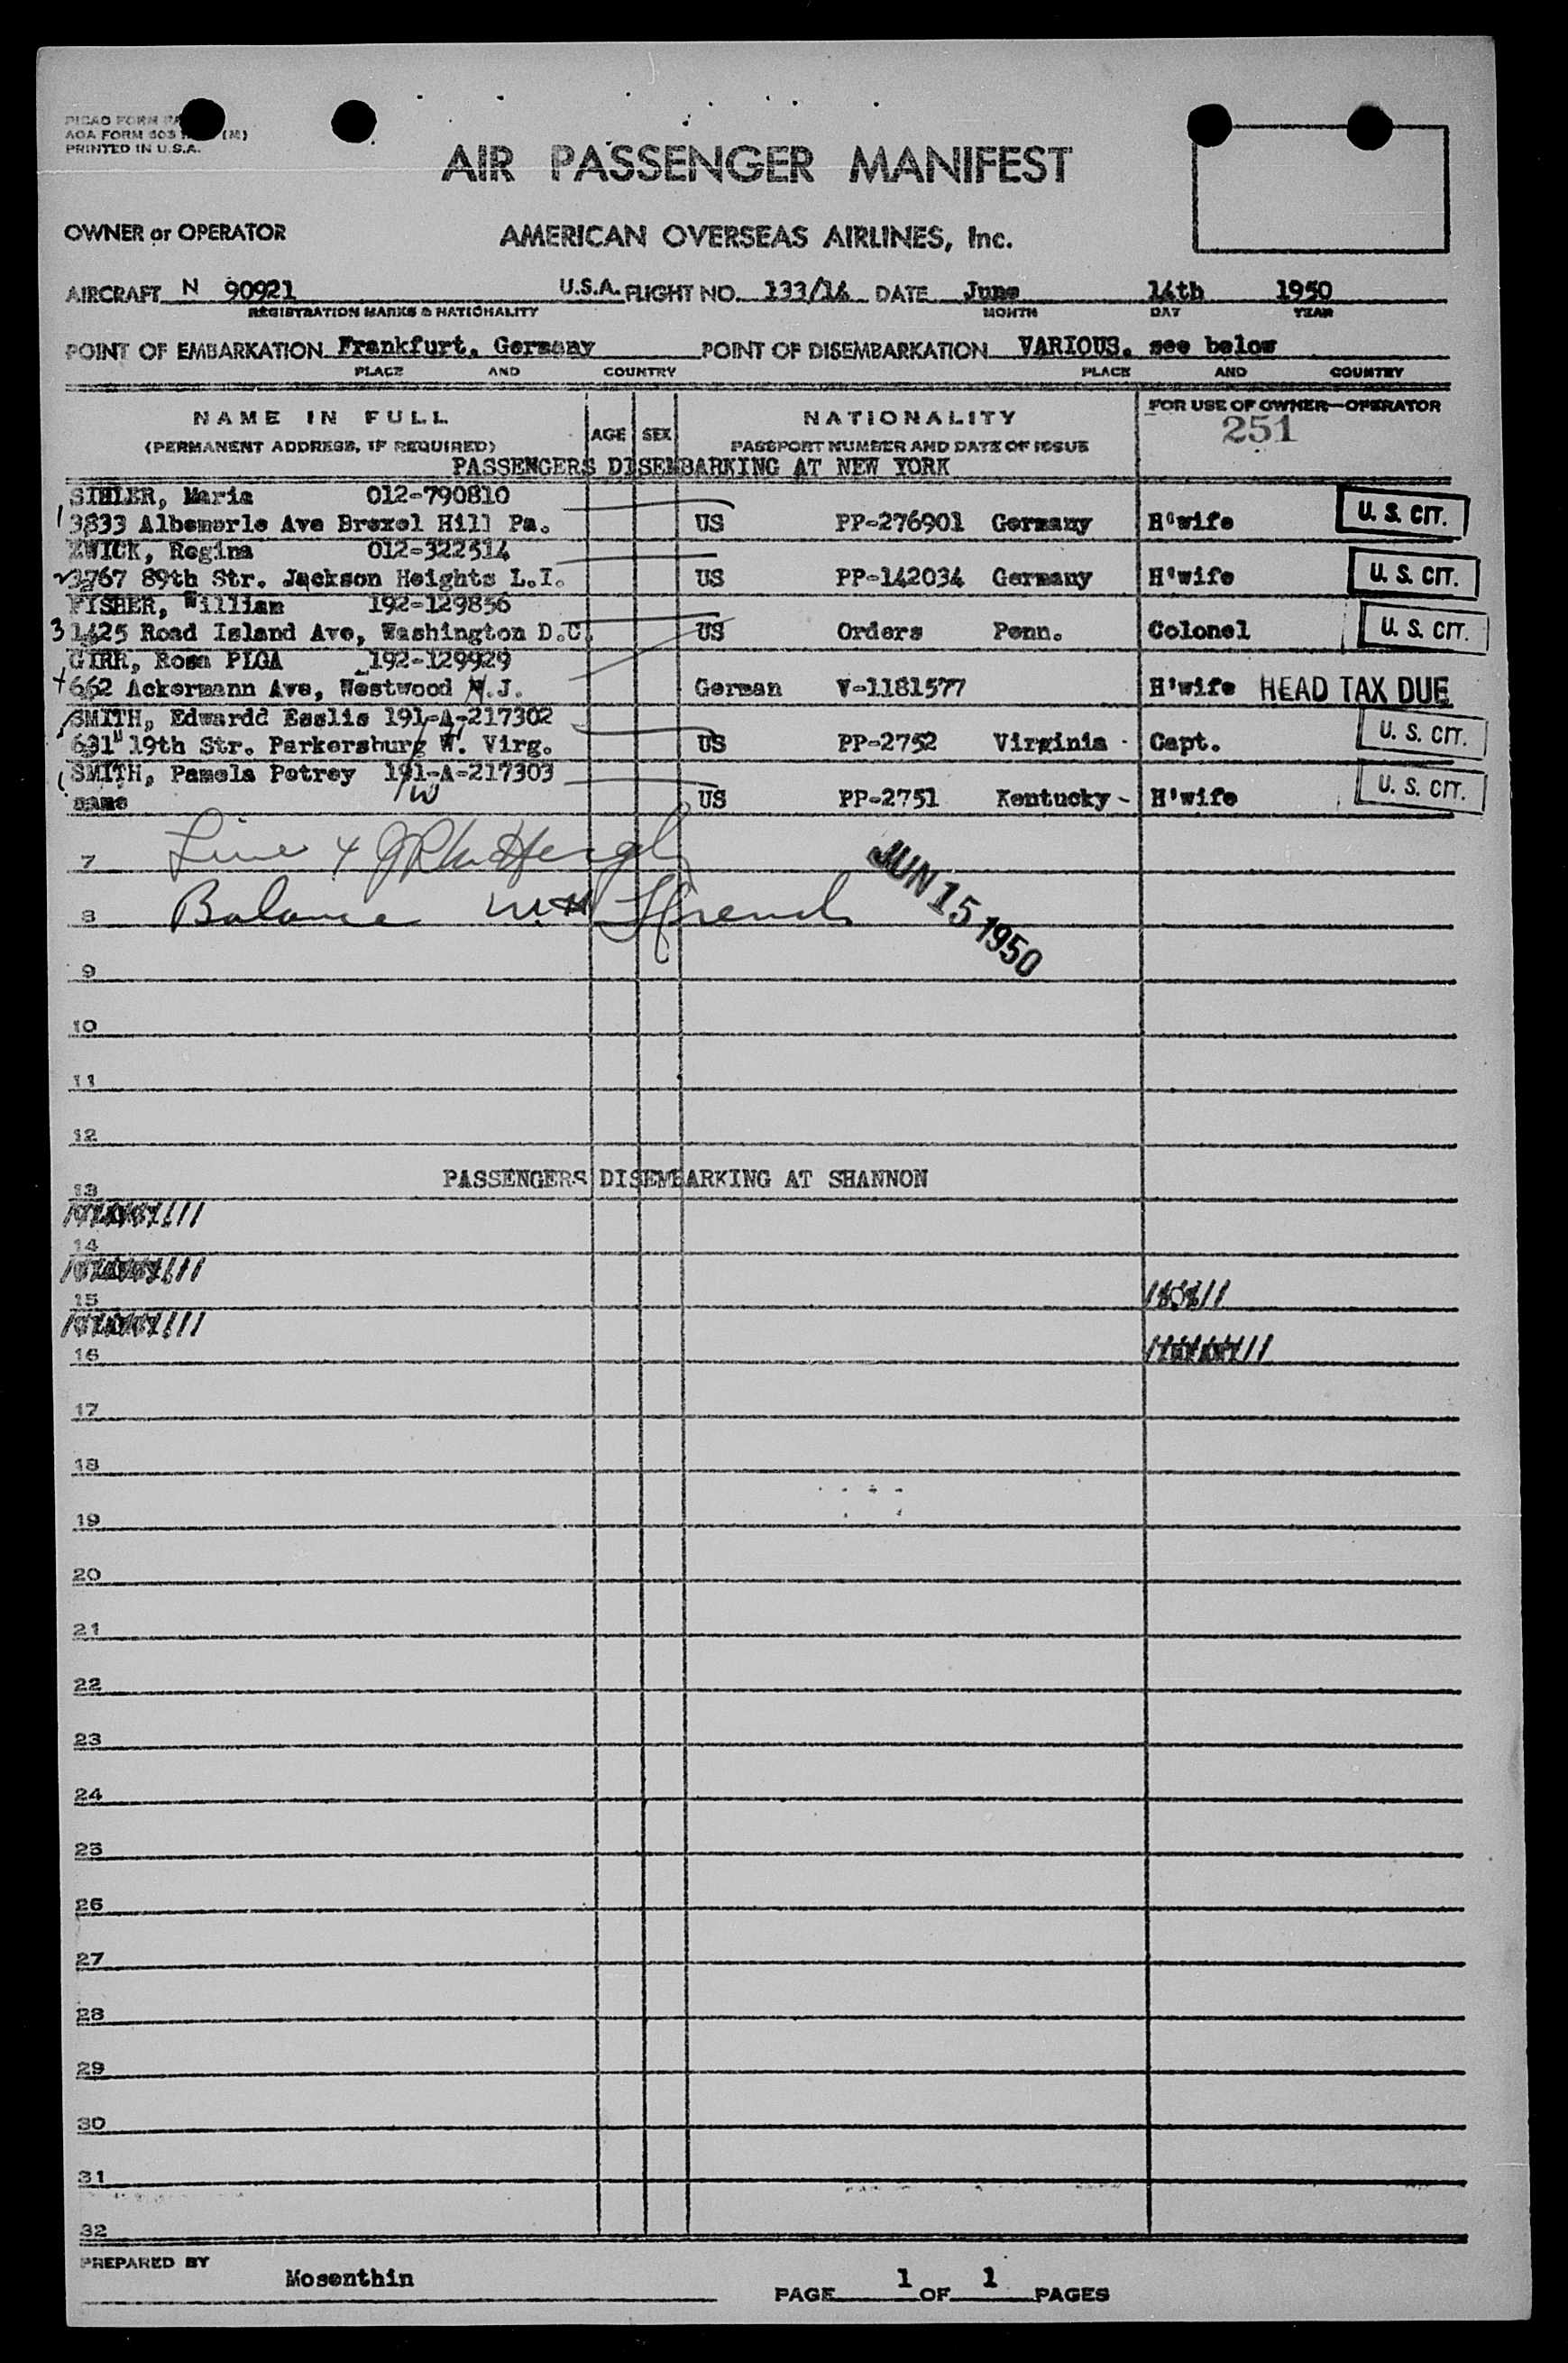 PICAO FORM
AOA FORM 503 (M)
PRINTED IN U.S.A.
AIR PASSENGER MANIFEST
OWNER or OPERATOR AMERICAN OVERSEAS AIRLINES, Inc.
AIRCRAFT N 90921 U.S.A. FLIGHT NO. 133/14 DATE June 14th 1950
REGISTRATION MARKS & NATIONALITY MONTH DAY YEAR
POINT OF EMBARKATION Frankfurt, Germany POINT OF DISEMBARKATION VARIOUS, see below
PLACE AND COUNTRY PLACE AND COUNTRY
NAME IN FULL AGE SEX NATIONALITY FOR USE OF OWNER—OPERATOR
251
(PERMANENT ADDRESS, IF REQUIRED) PASSPORT NUMBER AND DATE OF ISSUE
PASSENGERS DISEMBARKING AT NEW YORK
Maria 012-790810
1 3833 Albemarle Ave Brexel Hill Pa. US PP-276901 Germany H'wife U. S. CIT.
ZWICK, Regina 012-322514
3767 89th Str. Jackson Heights L.I. US PP-142034 Germany H'wife U. S. CIT.
FISHER, William 192-129856
3 1425 Road Island Ave, Washington D.C. US Orders Penn. Colonel U. S. CIT.
GIRR, Rosa PLGA 192-129929
662 Ackermann Ave, Westwood N.J. German V-1181577 H'wife HEAD TAX DUE
SMITH, Edwardd Esslie 191-A-217302
631 19th Str. Parkersburg W. Virg. US PP-2752 Virginia - Capt. U. S. CIT.
SMITH, Pamela Petrey 191-A-217303
same US PP-2751 Kentucky - H'wife U. S. CIT.
7 Line 4
8 Balance
JUN 15 1950
9
10
11
12
PASSENGERS DISEMBARKING AT SHANNON
13
14
15
16
17
18
19
20
21
22
23
24
25
26
27
28
29
30
31
32
PREPARED BY Mosenthin
PAGE 1 OF 1 PAGES